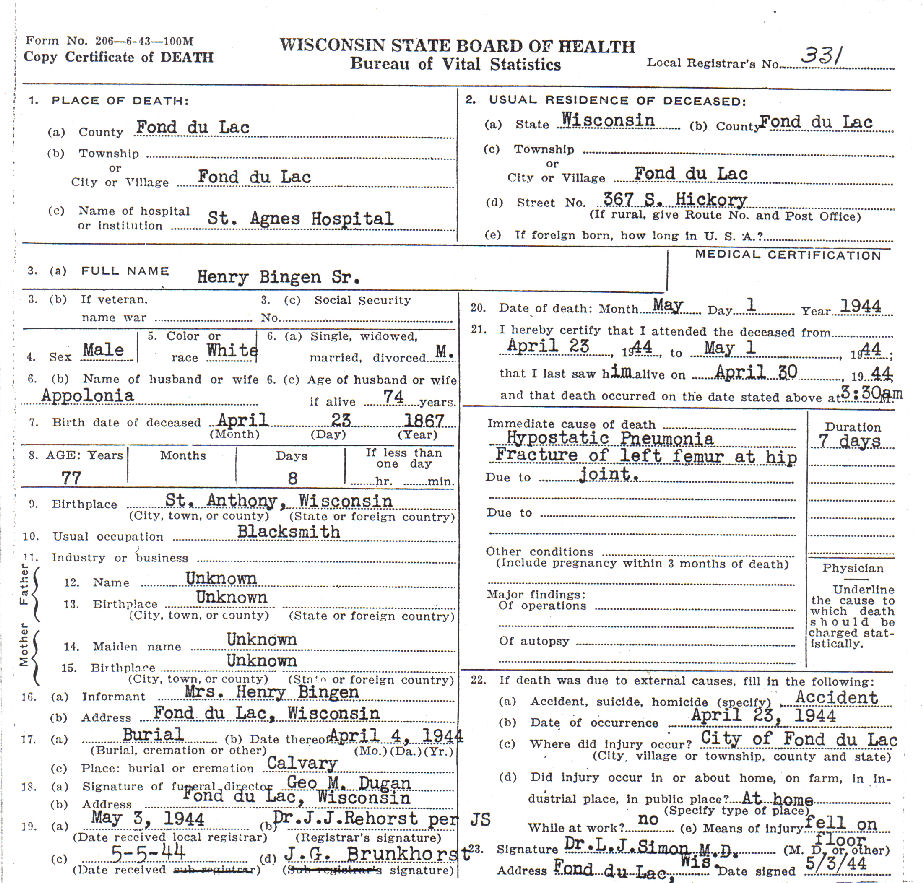 Form No. 206—6-43—100M
Copy Certificate of DEATH
WISCONSIN STATE BOARD OF HEALTH
Bureau of Vital Statistics
Local Registrar's No. 331
1. PLACE OF DEATH:
(a) County Fond du Lac
(b) Township
or
City or Village Fond du Lac
(c) Name of hospital
or institution St. Agnes Hospital
2. USUAL RESIDENCE OF DECEASED:
(a) State Wisconsin (b) County Fond du Lac
(c) Township
or
City or Village Fond du Lac
(d) Street No. 367 S. Hickory
(If rural, give Route No. and Post Office)
(e) If foreign born, how long in U. S. A.?
3. (a) FULL NAME Henry Bingen Sr.
3. (b) If veteran, 3. (c) Social Security
name war No.
4. Sex Male 5. Color or race White 6. (a) Single, widowed, married, divorced M.
6. (b) Name of husband or wife 6. (c) Age of husband or wife
Appolonia if alive 74 years.
7. Birth date of deceased April 23 1867
(Month) (Day) (Year)
8. AGE: Years Months Days If less than one day
77 8 hr. min.
9. Birthplace St. Anthony, Wisconsin
(City, town, or county) (State or foreign country)
10. Usual occupation Blacksmith
11. Industry or business
Father
12. Name Unknown
13. Birthplace Unknown
(City, town, or county) (State or foreign country)
Mother
14. Maiden name Unknown
15. Birthplace Unknown
(City, town, or county) (State or foreign country)
16. (a) Informant Mrs. Henry Bingen
(b) Address Fond du Lac, Wisconsin
17. (a) Burial (b) Date thereof April 4, 1944
(Burial, cremation or other) (Mo.) (Da.) (Yr.)
(c) Place: burial or cremation Calvary
18. (a) Signature of funeral director Geo M. Dugan
(b) Address Fond du Lac, Wisconsin
19. (a) May 3, 1944 (b) Dr.J.J.Rehorst per JS
(Date received local registrar) (Registrar's signature)
(c) 5-5-44 (d) J.G. Brunkhorst
(Date received sub registrar) (Sub registrar's signature)
MEDICAL CERTIFICATION
20. Date of death: Month May Day 1 Year 1944
21. I hereby certify that I attended the deceased from
April 23, 1944 to May 1, 1944;
that I last saw him alive on April 30, 1944
and that death occurred on the date stated above at 3:30am
Immediate cause of death
Hypostatic Pneumonia
Fracture of left femur at hip
Due to joint.
Due to
Other conditions
(Include pregnancy within 3 months of death)
Major findings:
Of operations
Of autopsy
Duration
7 days
Physician
Underline
the cause to
which death
should be
charged stat-
istically.
22. If death was due to external causes, fill in the following:
(a) Accident, suicide, homicide (specify) Accident
(b) Date of occurrence April 23, 1944
(c) Where did injury occur? City of Fond du Lac
(City, village or township, county and state)
(d) Did injury occur in or about home, on farm, in in-
dustrial place, in public place? At home
(Specify type of place)
While at work? no (e) Means of injury fell on
floor
23. Signature Dr.L.J.Simon M.D. (M. D. or other)
Address Fond du Lac, Wis. Date signed 5/3/44